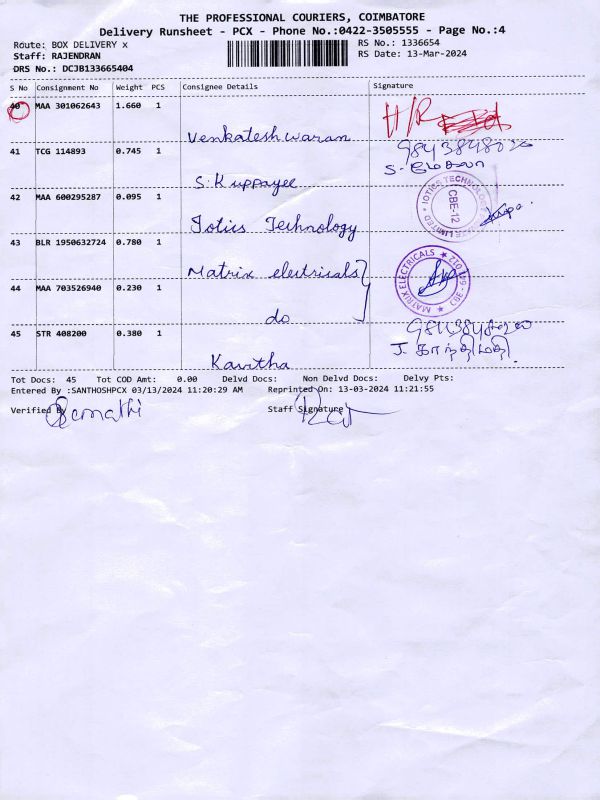 THE PROFESSIONAL COURIERS, COIMBATORE
Delivery Runsheet - PCX - Phone No.:0422-3505555 - Page No.:4
Route: BOX DELIVERY x
RS No.: 1336654
Staff: RAJENDRAN
RS Date: 13-Mar-2024
DRS No.: DCJB133665404
S No Consignment No Weight PCS Consignee Details Signature
40 MAA 301062643 1.660 1 Venkateshwaran H/R
41 TCG 114893 0.745 1 S. Kuppayee
42 MAA 600295287 0.095 1 Iotics Technology
IOTICS TECHNOLOGY
CBE-12
43 BLR 1950632724 0.780 1 Matrix electricals
MATRIX ELECTRICALS
44 MAA 703526940 0.230 1 do
45 STR 408200 0.380 1 Kavitha
J. காந்திமதி
Tot Docs: 45 Tot COD Amt: 0.00 Delvd Docs: Non Delvd Docs: Delvy Pts:
Entered By :SANTHOSHPCX 03/13/2024 11:20:29 AM Reprinted On: 13-03-2024 11:21:55
Verified By
Staff Signature